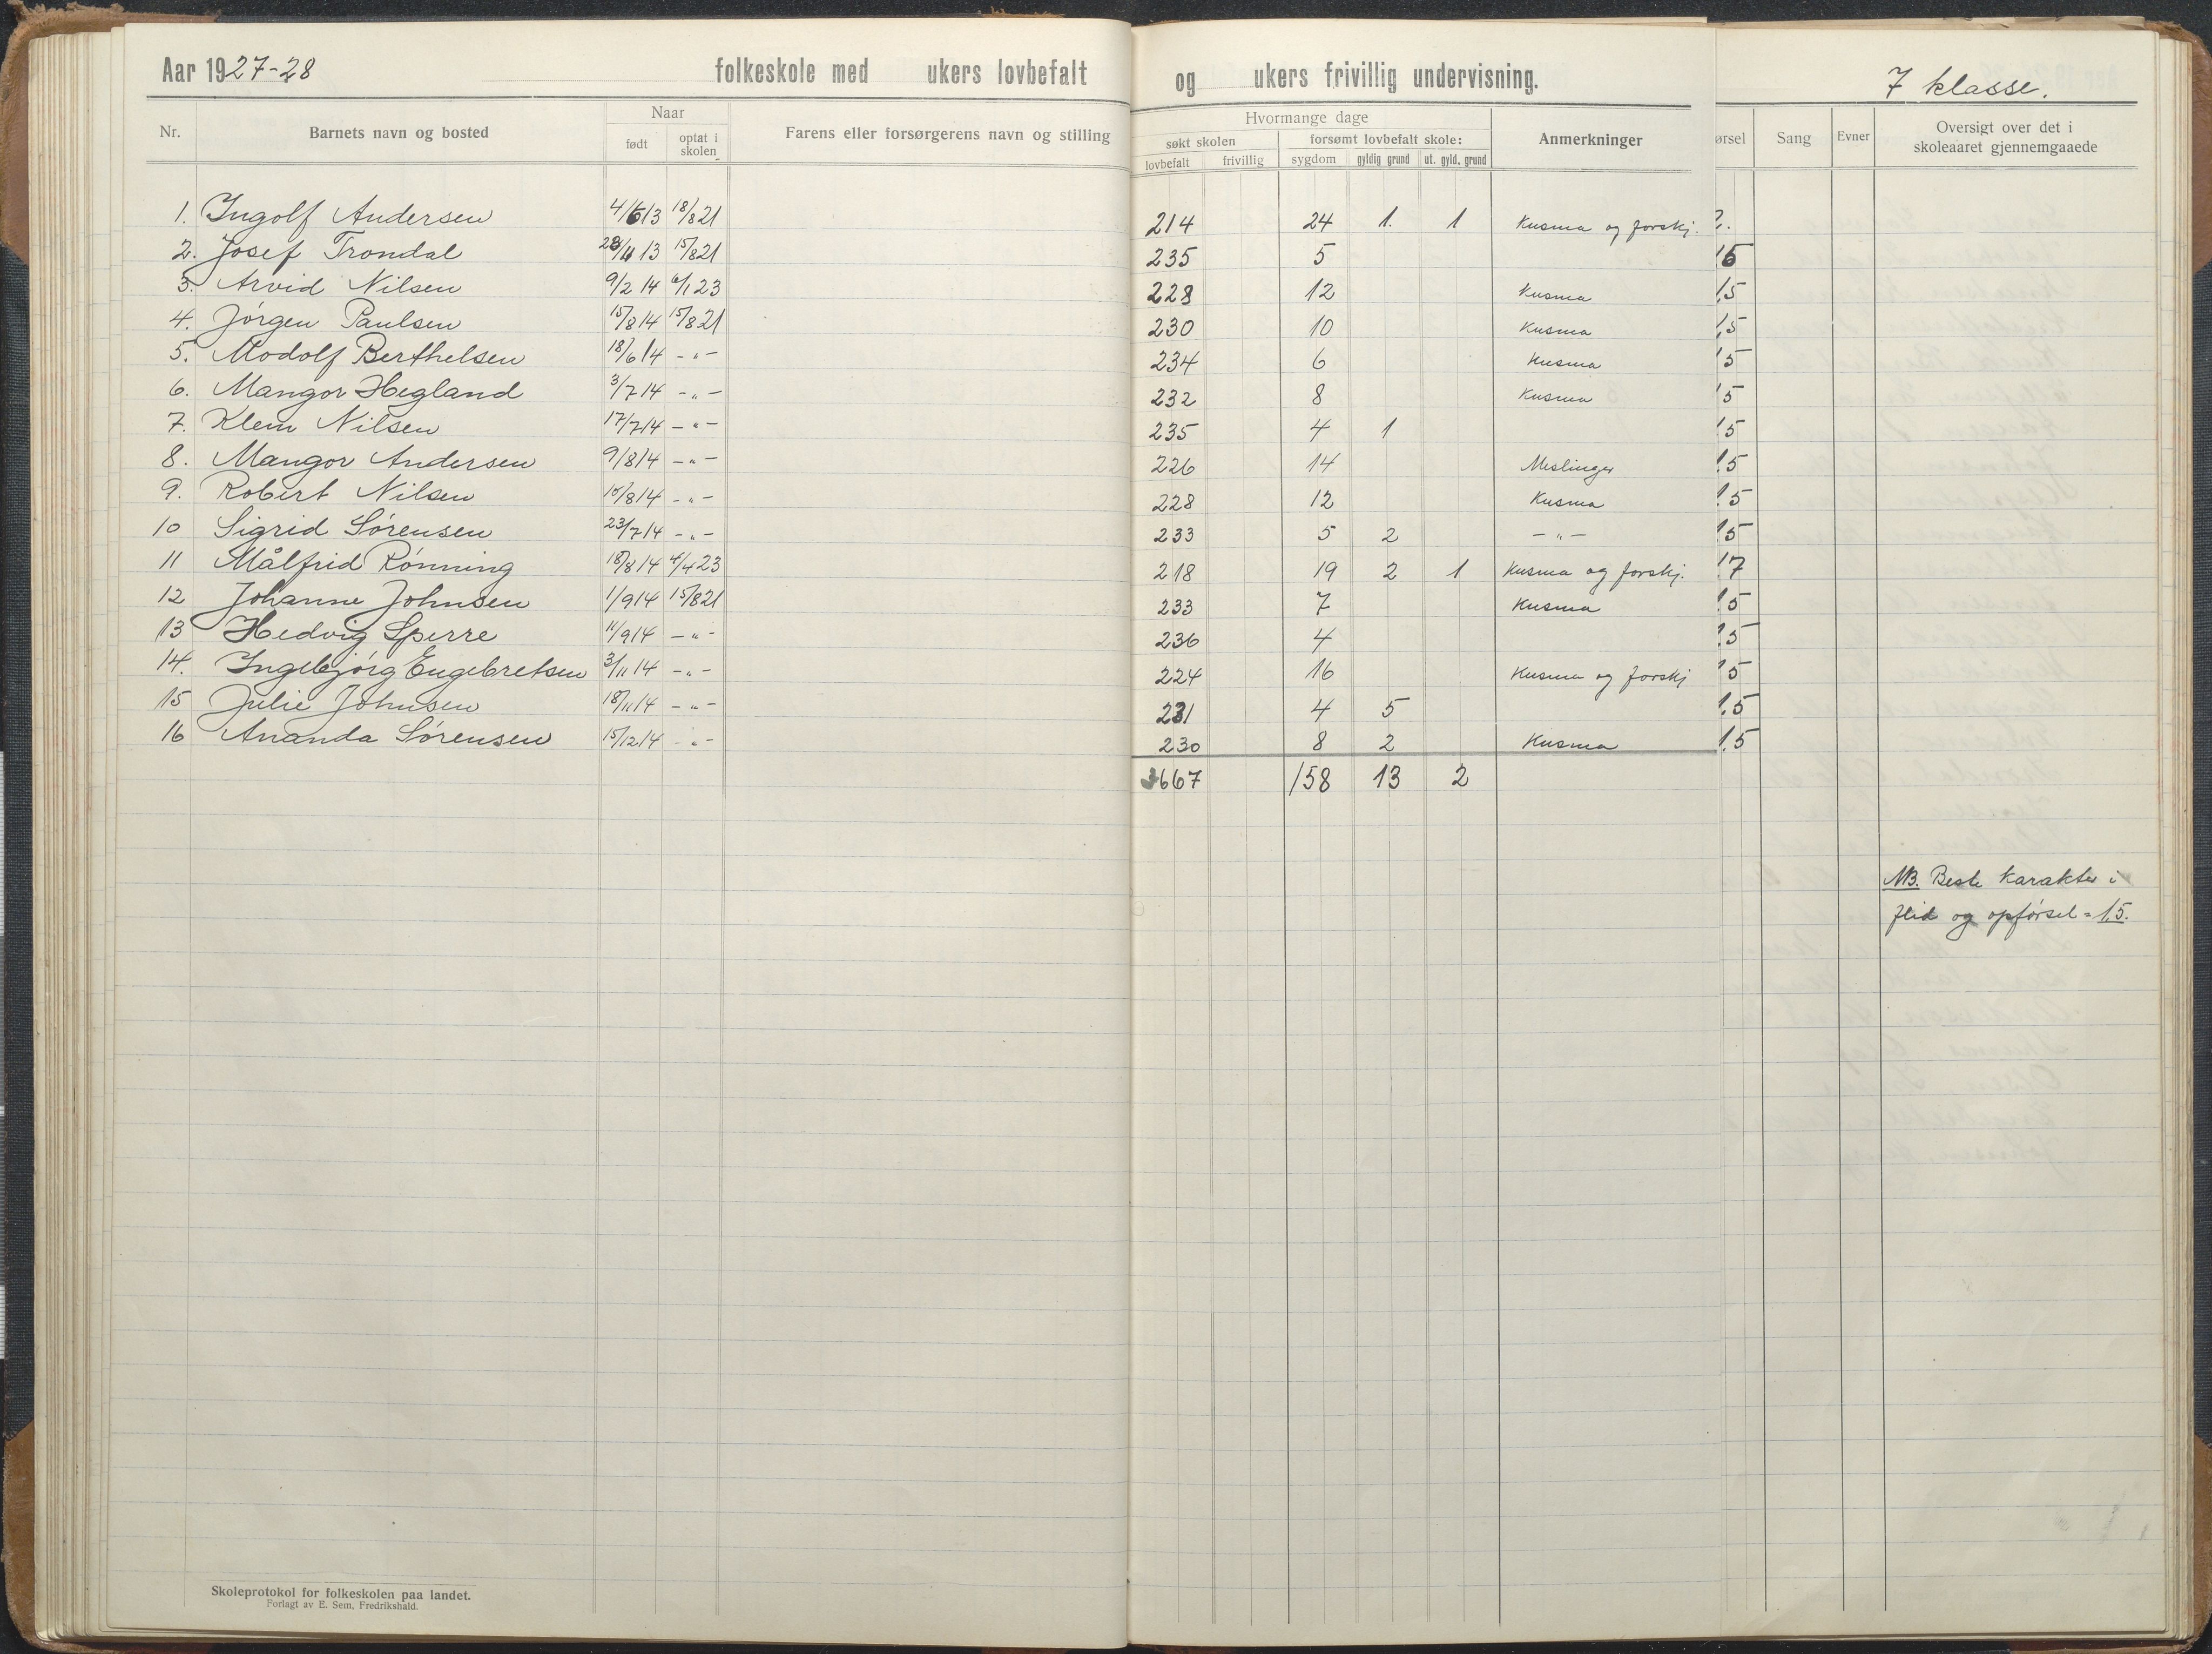 Aar 1927-28 folkeskole med ukers lovbefalt og ukers frivillig undervisning. 7 klasse.
Nr. Barnets navn og bosted Naar født optat i skolen Farens eller forsørgerens navn og stilling Hvormange dage søkt skolen lovbefalt frivillig forsømt lovbefalt skole: sygdom gyldig grund ut. gyld. grund Anmerkninger ørsel Sang Evner Oversigt over det i skoleaaret gjennemgaaede
1. Ingolf Andersen 4/6 13 18/8 21 214 24 1. 1 Kusma og forskj. 2.
2. Josef Trondal 13 15/8 21 235 5 15
3. Arvid Nilsen 9/2 14 6/1 23 228 12 Kusma 1.5
4. Jørgen Paulsen 15/8 14 15/8 21 230 10 Kusma 1.5
5. Modolf Berthelsen 18/6 14 -"- 234 6 Kusma 1.5
6. Mangor Hegland 3/7 14 -"- 232 8 Kusma 1.5
7. Klem Nilsen 17/7 14 -"- 235 4 1 1.5
8. Mangor Andersen 9/8 14 -"- 226 14 Meslinger 1.5
9. Robert Nilsen 10/8 14 -"- 228 12 Kusma 1.5
10 Sigrid Sørensen 23/7 14 -"- 233 5 2 -"- 1.5
11 Målfrid Rønning 18/8 14 4/4 23 218 19 2 1 Kusma og forskj. 1.7
12 Johanne Johnsen 1/9 14 15/8 21 233 7 Kusma 1.5
13 Hedvig Sperre 11/9 14 -"- 236 4 1.5
14. Ingebjørg Engebretsen 3/11 14 -"- 224 16 Kusma og forskj 1.5
15 Julie Johnsen 18/11 14 -"- 231 4 5 1.5
16 Ananda Sørensen 15/12 14 -"- 230 8 2 Kusma 1.5
3667 158 13 2
NB. Beste karakter i
flid og opførsel = 1.5.
Skoleprotokol for folkeskolen paa landet.
Forlagt av E. Sem, Fredrikshald.